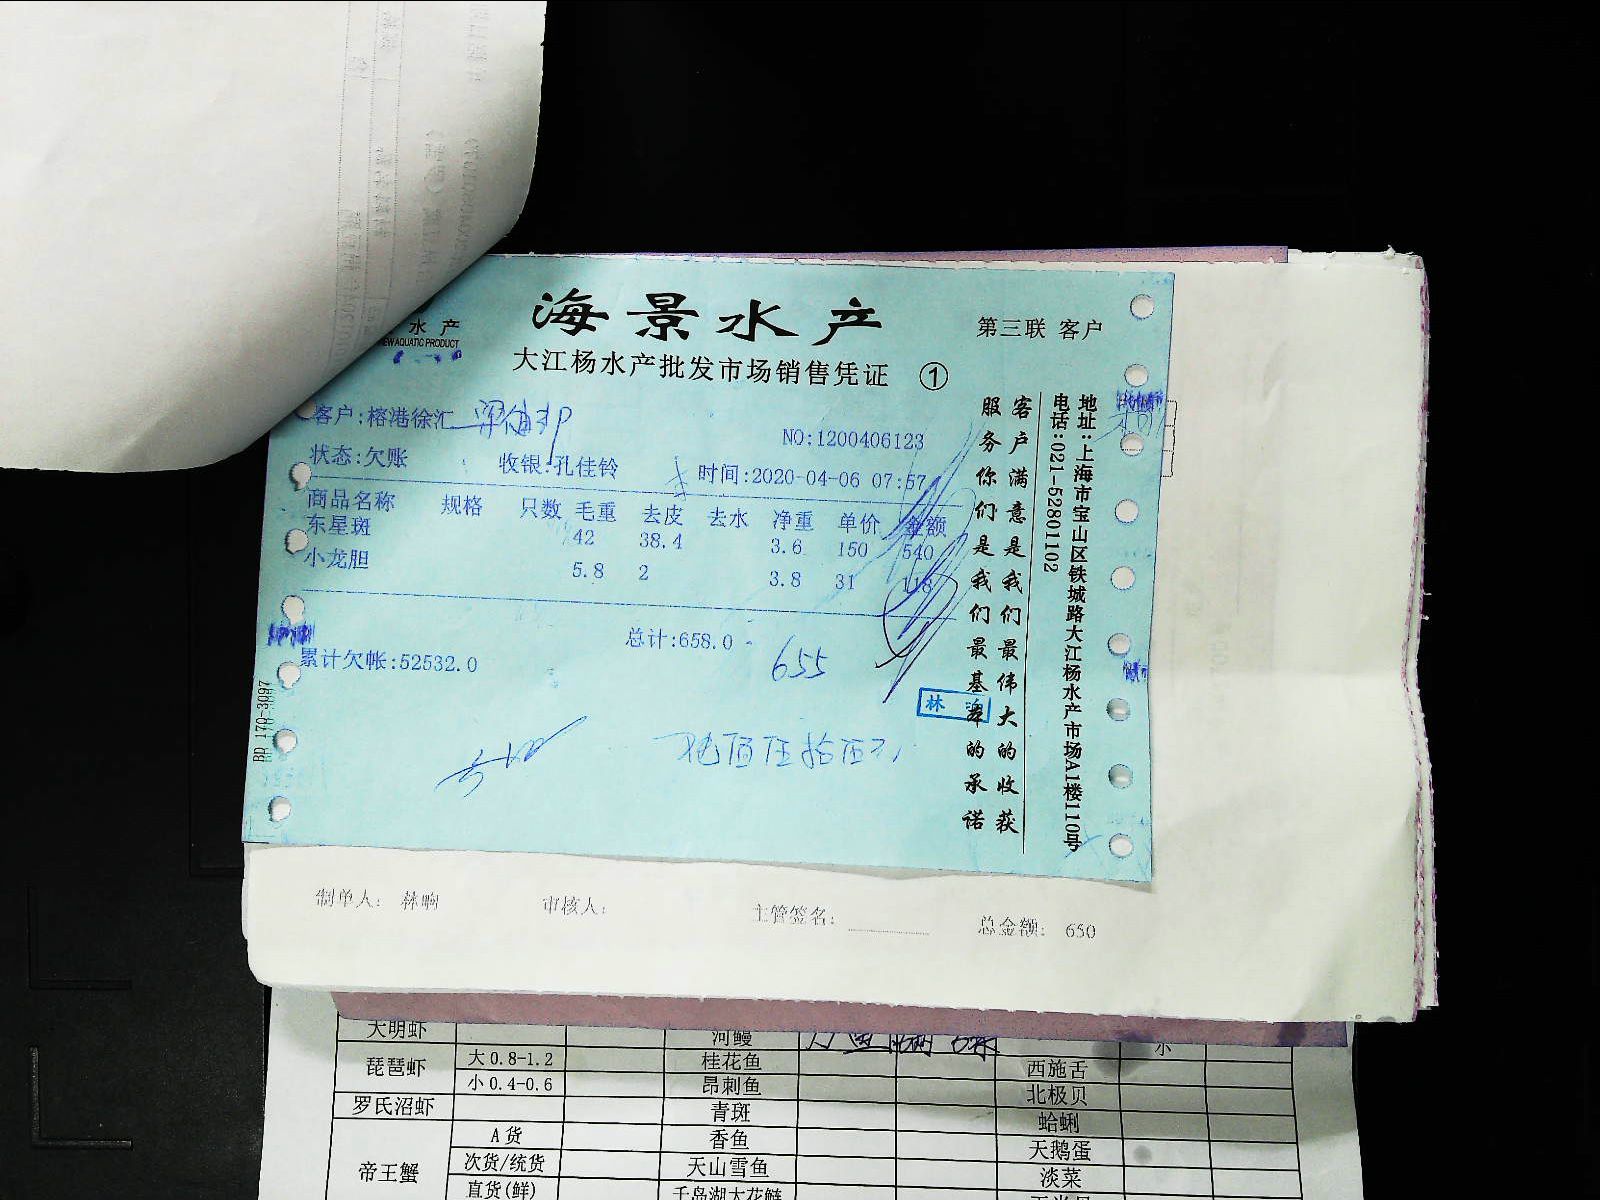 水产
EW AQUATIC PRODUCT
海景水产
第三联 客户
大江杨水产批发市场销售凭证 ①
客户:榕港徐汇
NO:1200406123
状态:欠账 收银:孔佳铃 时间:2020-04-06 07:57
商品名称 规格 只数 毛重 去皮 去水 净重 单价 金额
东星斑 42 38.4 3.6 150 540
小龙胆 5.8 2 3.8 31 118
总计:658.0
655
累计欠帐:52532.0
客户满意是我们最伟大的收获
服务你们是我们最基本的承诺
地址:上海市宝山区铁城路大江杨水产市场A1楼110号
电话:021-52801102
林
BP 170-3097
制单人: 审核人: 主管签名: 总金额: 650
大明虾 河鳗
琵琶虾 大0.8-1.2 桂花鱼 西施舌
小0.4-0.6 昂刺鱼 北极贝
罗氏沼虾 青斑 蛤蜊
帝王蟹 A货 香鱼 天鹅蛋
次货/统货 天山雪鱼 淡菜
直货(鲜) 千岛湖大花鲢